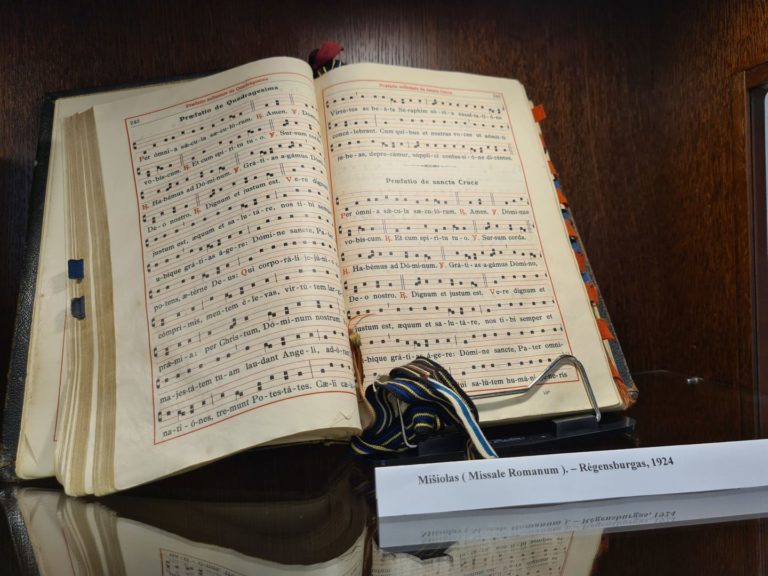 242
Præfatio solemnis de Quadragesima
Præfatio de Quadragesima
Per ómni-a sǽ-cu-la sæ-cu-ló-rum. ℟. Amen. ℣. Dómi-
vo-bís-cum. ℟. Et cum spí-ri-tu tu-o. ℣. Sur-sum
℟. Ha-bémus ad Dó-mi-num. ℣. Grá-ti-as a-gámus
De-o nostro. ℟. Dignum et justum est. Ve-re dignum
justum est, æquum et sa-lu-tá-re, nos ti-bi semp
u-bique grá-ti-as á-ge-re: Dómi-ne sancte, Pa-ter
potens, æ-térne De-us: Qui corpo-rá-li je-jú-ni-
cómpri-mis, men-tem é-le-vas, vir-tú-tem lar-
prǽ-mi-a: per Chris-tum, Dó-mi-num nostrum.
ma-jes-tá-tem tu-am laudant Ange-li, ad-ó-
na-ti-ónes, tremunt Po-tes-tá-tes. Cæli cæ-
Præfatio solemnis de sancta Cruce
Virtú-tes ac be-á-ta Sé-raphim só-ci-a exsul-ta-ti-ó-ne
concé-lebrant. Cum qui-bus et nostras vo-ces ut admít-ti
jú-be-as, depre-cámur, súppli-ci confes-si-ó-ne di-céntes.
Præfatio de sancta Cruce
Per ómni-a sǽ-cu-la sæ-cu-ló-rum. ℟. Amen. ℣. Dóminus
vobís-cum. ℟. Et cum spí-ri-tu tu-o. ℣. Sur-sum corda.
℟. Ha-bémus ad Dómi-num. ℣. Grá-ti-as a-gámus Dómi-no,
De-o nostro. ℟. Dignum et justum est. Ve-re dignum
et justum est, æquum et sa-lu-tá-re, nos ti-bi semper et
u-bique grá-ti-as á-ge-re: Dómi-ne sancte, Pa-ter omni-
sa-lú-tem humá-ni gé-ne-ris
Mišiolas ( Missale Romanum ). – Rėgensburgas, 1924